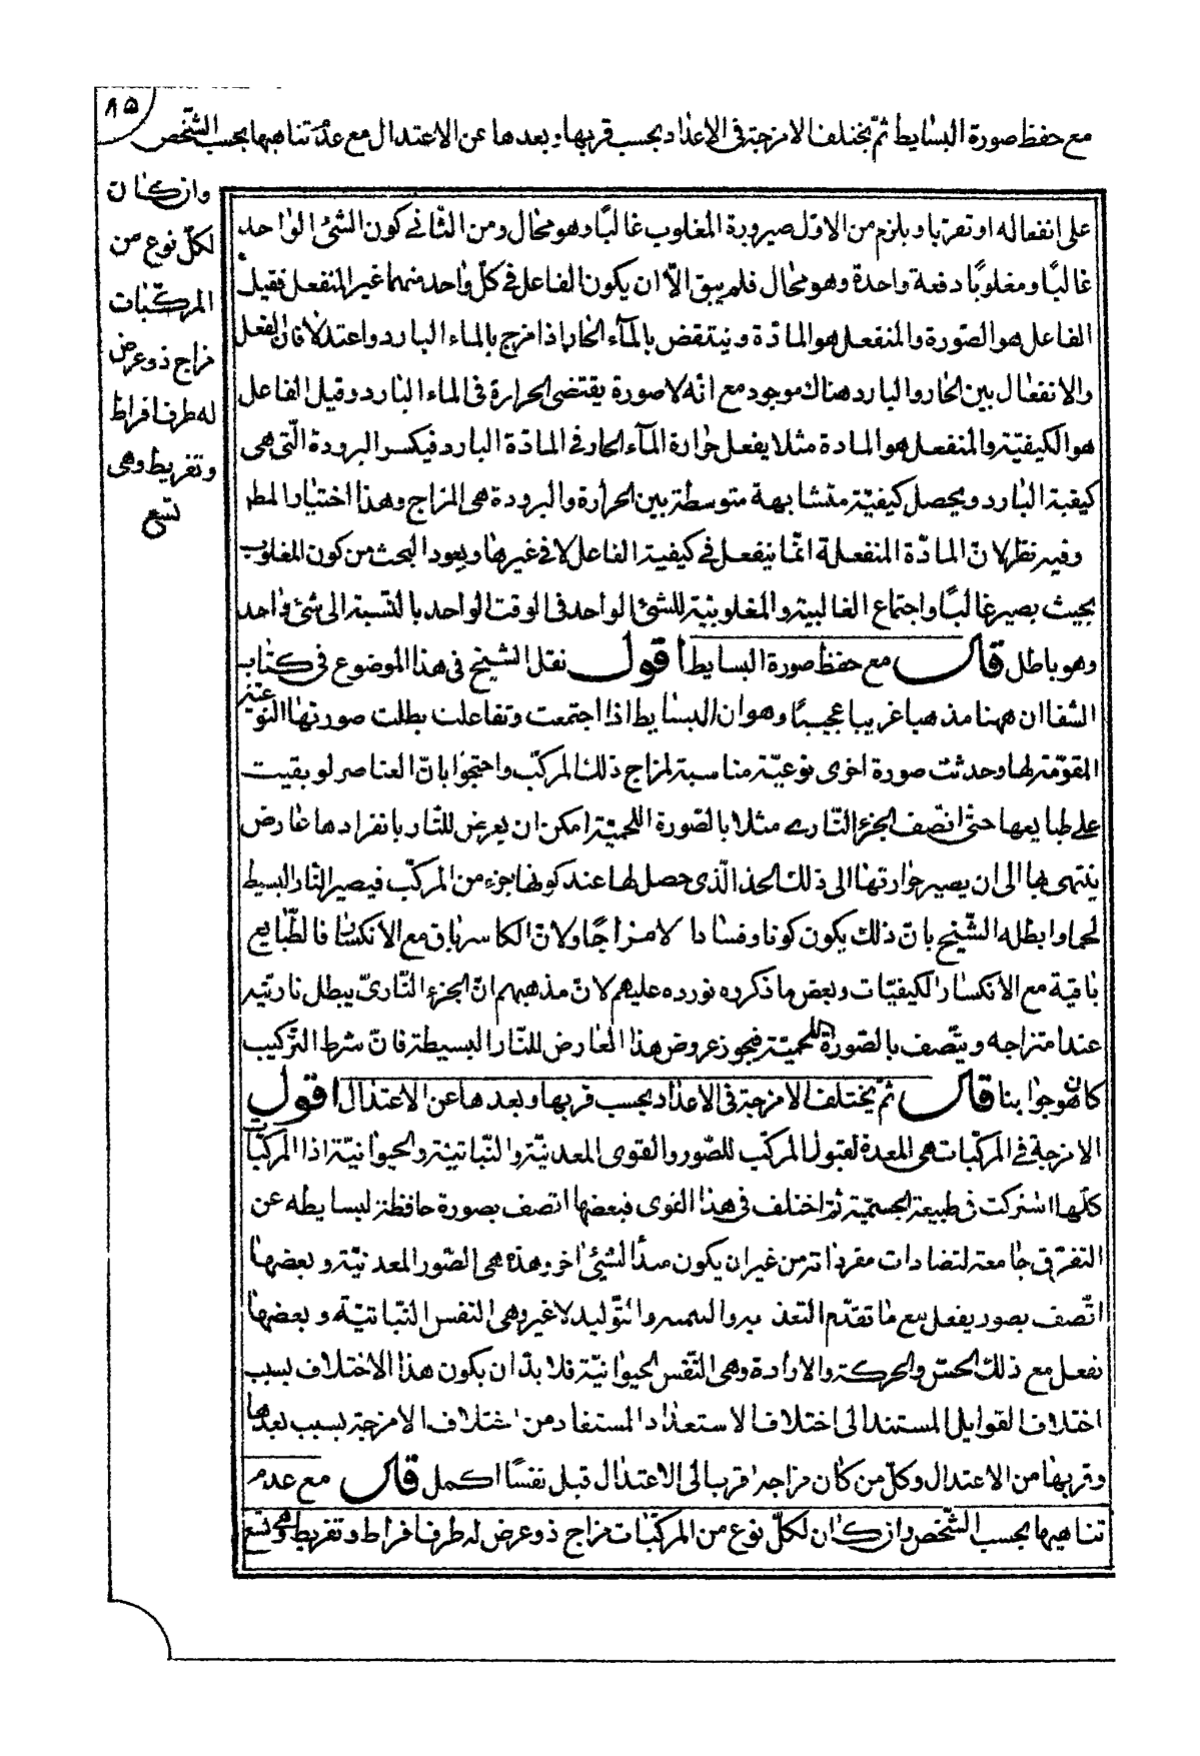 ٨٥
مع حفظ صورة البسايط ثمّ يختلف الامزجة فى الاعداد بحسب قربها و بعدها عن الاعتدال مع عدم تناهيها بحسب الشّخص
وان كان
لكلّ نوع من
المركّبات
مزاج ذو عرض
له طرفا افراط
و تفريط وهى
تسع
على انفعاله او تقربا و يلزم من الاوّل صيرورة المغلوب غالبًا و هو محال و من الثّانى كون الشئ الواحد
غالبًا و مغلوبًا دفعة واحدة و هو محال فلم يبق الّا ان يكون الفاعل فى كلّ واحد منهما غير المنفعل فقيل
الفاعل هو الصّورة و المنفعل هو المادّة و ينتقض بالمآء الحار اذا مزج بالماء البارد و اعتدلا فان الفعل
والانفعال بين الحار و البارد هناك موجود مع انّه لا صورة يقتضى الحرارة فى الماء البارد و قيل الفاعل
هو الكيفيّة و المنفعل هو المادة مثلا يفعل حرارة المآء الحار فى المادّة البارد فيكسر البرودة الّتى هى
كيفية البارد و يحصل كيفيّة متشابهة متوسطة بين الحرارة و البرودة هى المزاج و هذا اختيار المط
وفيه نظر لانّ المادّة المنفعلة انّما ينفعل فى كيفية الفاعل لا فى غيرها و يعود البحث من كون المغلوب
بحيث يصير غالبًا و اجتماع الغالبية و المغلوبيّة للشئ الواحد فى الوقت الواحد بالنّسبة الى شئ واحد
وهو باطل قال مع حفظ صورة البسايط اقول نقل الشيخ فى هذا الموضوع فى كتاب
الشفا ان ههنا مذهبا غريبا عجيبًا و هو ان البسايط اذا اجتمعت و تفاعلت بطلت صورتها النّوعيّة
المقوّمة لها و حدثت صورة اخرى نوعيّة مناسبة لمزاج ذلك المركّب و احتجّوا بانّ العناصر لو بقيت
على طبايعها حتّى اتّصف الجزء النّارى مثلا بالصّورة اللحميّة امكن ان يعرض للنّار بانفرادها عارض
ينتهى بها الى ان يصير حرارتها الى ذلك الحدّ الّذى حصل لها عند كونها جزء من المركّب فيصير النّار البسيط
لحما و ابطله الشّيخ بانّ ذلك يكون كونا و فسادا لا مزاجًا و لانّ الكاسر باق مع الانكسار فالطّبايع
باقية مع الانكسار الكيفيّات و بعض ما ذكروه نورده عليهم لانّ مذهبهم انّ الجزء النّارىّ يبطل ناريّته
عند امتزاجه و يتّصف بالصّورة اللحميّة فيجوز عروض هذا العارض للنّار البسيطة فانّ شرط التّركيب
كان هو جوابنا قال ثمّ يختلف الامزجة فى الاعداد بحسب قربها و بعدها عن الاعتدال اقول
الامزجة فى المركّبات هى المعدة لقبول المركّب للصّور و القوى المعدنيّة و النّباتيّة و الحيوانيّة اذا المركّبات
كلّها اشتركت فى طبيعة الجسميّة ثمّ اختلف فى هذا القوى فبعضها اتصف بصورة حافظة لبسايطه عن
التفرّق جامعة لتضادات مفرداته من غير ان يكون مبدأ لشيئ اخر و هذه هى الصّور المعدنيّة و بعضها
اتّصف بصور يفعل مع ما تقدّم التغذية و التنمية و التّوليد لا غير و هى النفس النّباتيّة و بعضها
يفعل مع ذلك الحسّ و الحركة و الارادة و هى النّفس الحيوانيّة فلا بدّ ان يكون هذا الاختلاف بسبب
اختلاف القوابل المستند الى اختلاف الاستعداد المستفاد من اختلاف الامزجة بسبب بعدها
و قربها من الاعتدال و كلّ من كان مزاجه اقرب الى الاعتدال قبل نفسًا اكمل قال مع عدم
تناهيها بحسب الشّخص و ان كان لكلّ نوع من المركّبات مزاج ذو عرض له طرفا افراط و تفريط و هى تسع